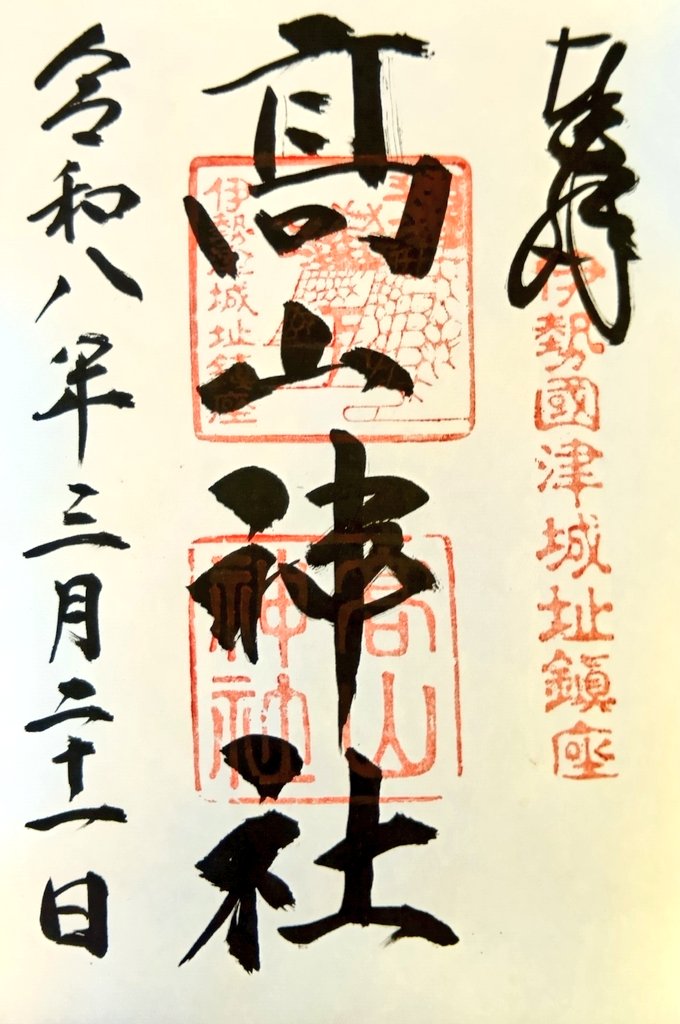 奉拝
伊勢國津城址鎮座
髙山神社
伊勢津城址鎮座
高山
神社
令和八年三月二十一日